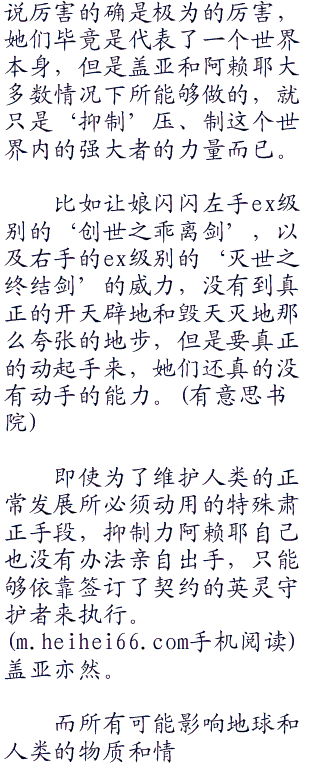 说厉害的确是极为的厉害，
她们毕竟是代表了一个世界
本身，但是盖亚和阿赖耶大
多数情况下所能够做的，就
只是‘抑制’压、制这个世
界内的强大者的力量而已。
比如让娘闪闪左手ex级
别的‘创世之乖离剑’，以
及右手的ex级别的‘灭世之
终结剑’的威力，没有到真
正的开天辟地和毁天灭地那
么夸张的地步，但是要真正
的动起手来，她们还真的没
有动手的能力。(有意思书
院)
即使为了维护人类的正
常发展所必须动用的特殊肃
正手段，抑制力阿赖耶自己
也没有办法亲自出手，只能
够依靠签订了契约的英灵守
护者来执行。
(m.heihei66.com手机阅读)
盖亚亦然。
而所有可能影响地球和
人类的物质和情